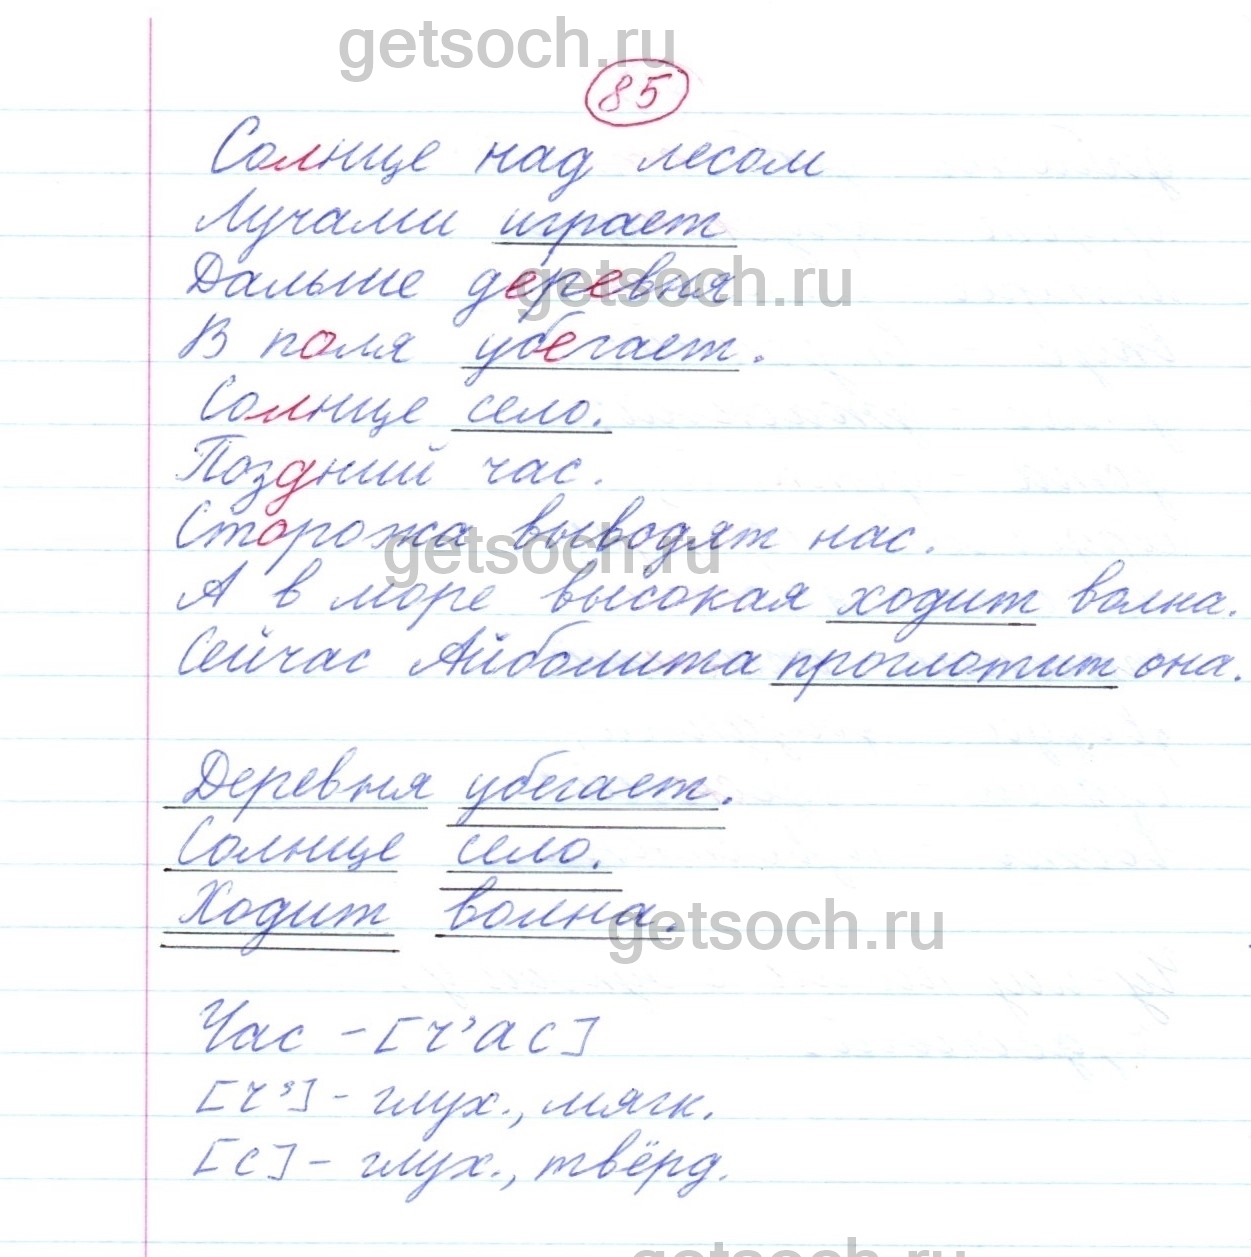 getsoch.ru
85
Солнце над лесом
Лучами играет
Дальше деревня
getsoch.ru
В поля убегает.
Солнце село.
Поздний час.
Сторожа выводят нас.
getsoch.ru
А в море высокая ходит волна.
Сейчас Айболита проглотит она.
Деревня убегает.
Солнце село.
Ходит волна.
getsoch.ru
Час – [ч'ас]
[ч'] – глух., мягк.
[с] – глух., твёрд.
getsoch.ru